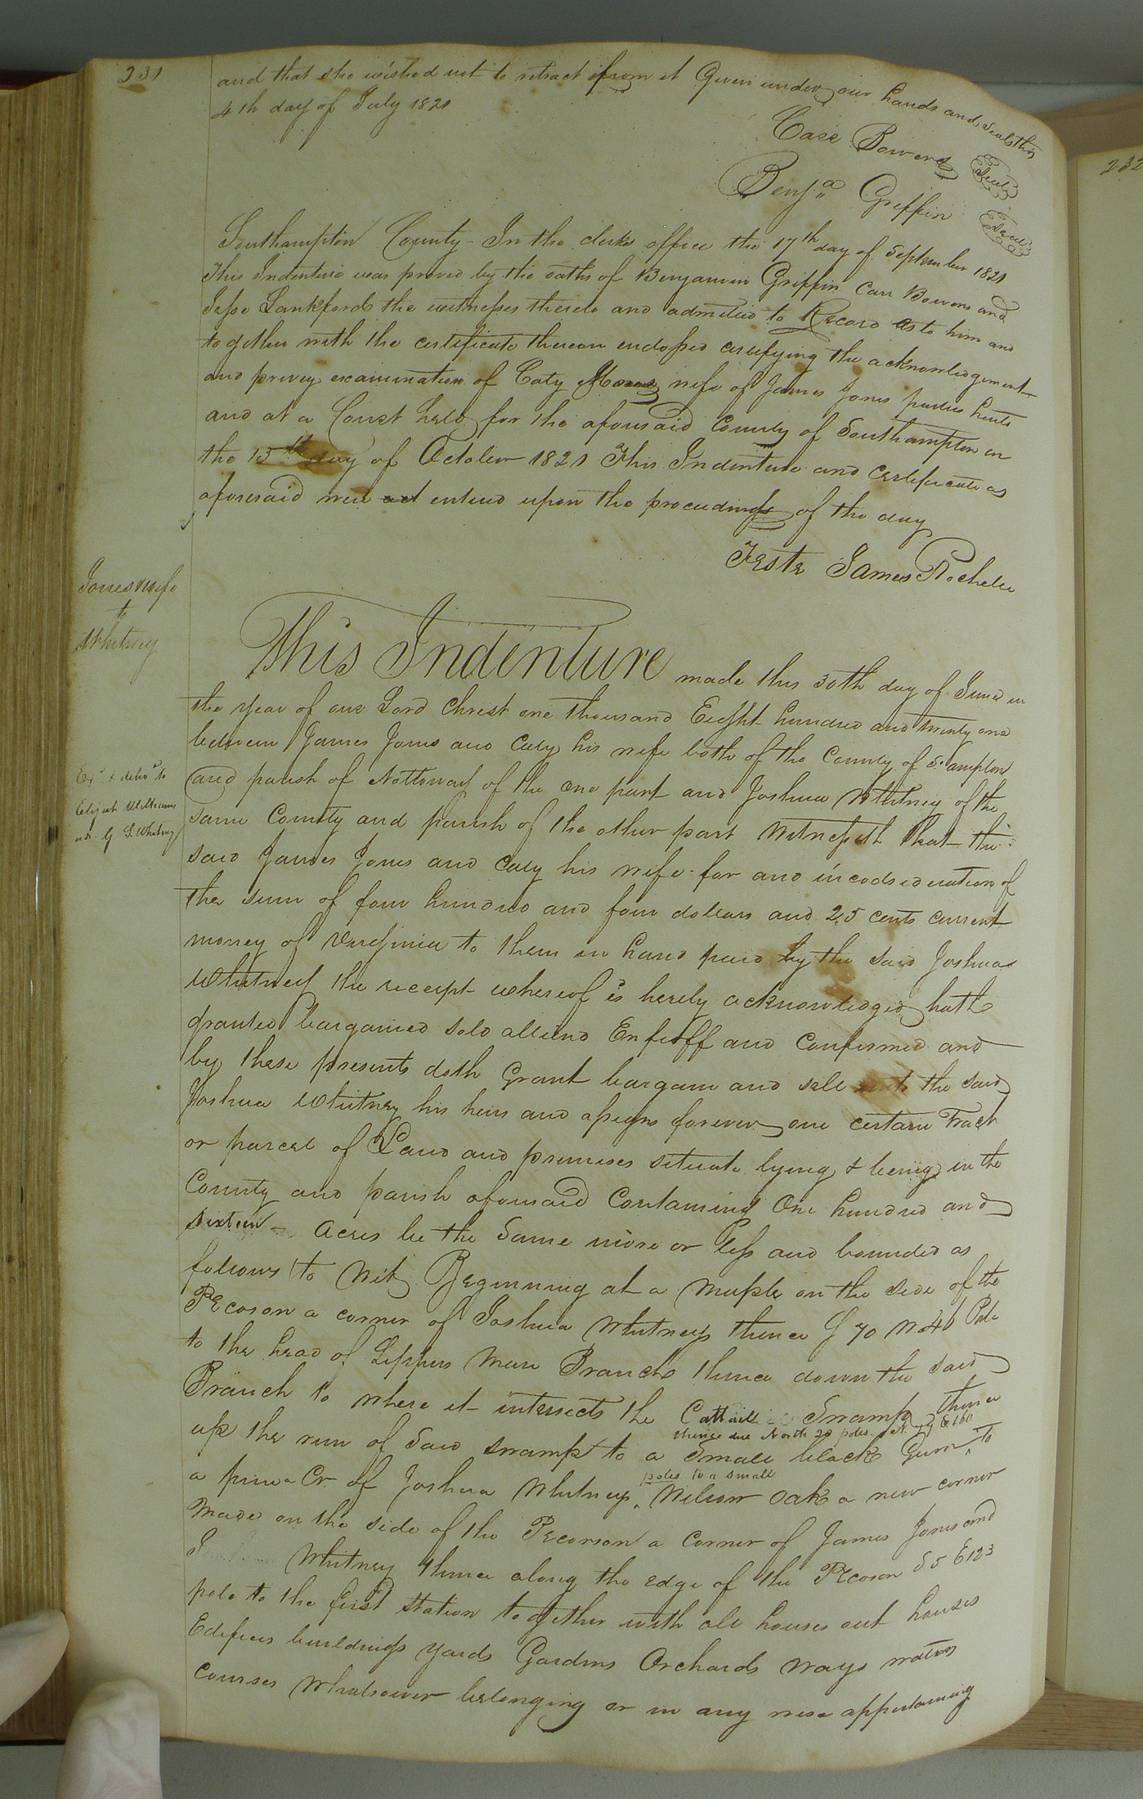 231
and that she wished not to retract from it Given under our hands and seals this
4th day of July 1821
Carr Bowers Seal
Benja Griffin Seal
Southampton County - In the clerks office the 17th day of September 1821
This Indenture was proved by the oaths of Benjamin Griffin Carr Bowers and
Jesse Lankford the witnesses thereto and admitted to Record as to him and
together with the certificate thereon endorsed certifying the acknowledgement
and privey examination of Caty wife of James Jones parties hereto
and at a Court held for the aforesaid County of Southampton on
the 15th day of October 1821 This Indenture and Certificate as
aforesaid were entered upon the proceedings of the day
Teste James Rochelle
Jones & wife
to
Whitney
This Indenture made this 30th day of June in
the year of our Lord Christ one thousand Eight hundred and twenty one
between James Jones and Caty his wife both of the County of S.ampton
and parish of Nottoway of the one part and Joshua Whitney of the
Exd & delivd to
Elijah Williams
ord. of J. Whitney
same County and parish of the other part Witnesseth that the
said James Jones and Caty his wife for and in codsideration of
the sum of four hundred and four dollars and 25 cents current
money of Virdjinia to them in hand paid by the said Joshua
Whitney the receipt whereof is hereby acknowledged hath
granted bargained sold aliend Enfeoff and Confirmed and
by these presents doth Grant bargain and sell unto the said
Joshua Whitney his heirs and assigns forever one certain Tract
or parcel of Land and premises situate lying & being in the
County and parish aforesaid Containing One hundred and
sixteen acres be the same more or less and bounded as
follows to Wit, Beginning at a maple on the side of the
Pecoson a corner of Joshua Whitneys thence S 70 W 246 Pole
to the head of Mare Branch thence down the said
Branch to where it intersects the Cattail Swamp thence
up the run of said swamp to a small black Gum to
thence due North 20 poles
a pine Cr of Joshua Whitneys, Willow Oak a new corner
poles to a small
made on the side of the Pecorson a corner of James Jones and
Whitney thence along the edge of the Pecoson S 5 E 123
pole to the first station together with all houses out houses
Edifices buildings yards Gardens Orchards ways waters
courses whatsoever belonging or in any wise appertaining
232